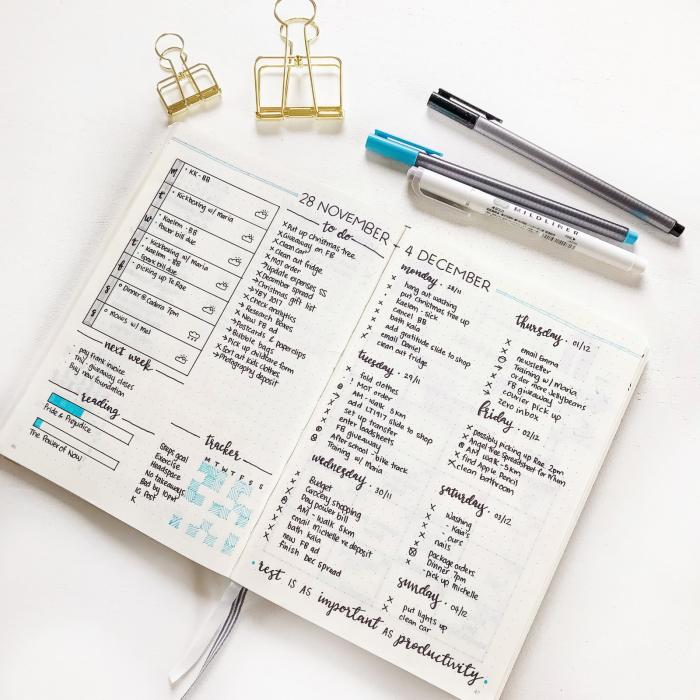 28 NOVEMBER - 4 DECEMBER
M
KK - BB
t
Kickboxing w/ Maria
w
Kaelem - BB
Power bill due
t
Kickboxing w/ Maria
Kaelem - BB
Spark bill due
f
picking up te Rae
s
Dinner @ Cadera 7pm
s
Movies w/ Mel
next week
pay frank invoice
Tiny giveaway closes
Buy new foundation
reading
Pride & Prejudice
The Power of Now
to do
x Put up christmas tree
x Giveaway on FB
x Clean car
x Clean out fridge
x Mot order
x Update expenses SS
x December spread
→ Christmas gift list
→ YBY 2017
x Check analytics
→ Research Boxes
x New FB ad
→ Postcards & paperclips
→ Bubble bags
x Pick up childcare form
x Sort out kids clothes
→ photography deposit
tracker
M T W T F S S
8hrs goal
Exercise
Headspace
No takeaways
Bed by 10pm
IG Post
K
monday · 28/11
x hang out washing
x put christmas tree up
x Kaelem - sick
x cancel BB
x bath Kaia
x add gratitude slide to shop
x email Daniel
x clean out fridge
tuesday · 29/11
x fold clothes
x Mot order
AM - walk 5km
add LT1917 slide to shop
x set up transfer
x enter loadsheets
x FB giveaway
After school - bike track
Training w/ Maria
wednesday · 30/11
x Budget
x Grocery shopping
x pay power bill
AM - walk 5km
x email michelle re deposit
x bath Kaia
x new FB ad
x finish Dec spread
thursday · 01/12
x email Emma
x Newsletter
Training w/ Maria
→ order more Jellybeans
x FB giveaway
x courier pick up
→ zero inbox
friday · 02/12
x possibly picking up Rae 2pm
x Angel tree spreadsheet for Mum
AM walk - 5km
x find Apple pencil
x clean bathroom
saturday · 03/12
x washing
x - Kaia's
x - ours
x nails
package orders
Dinner 7pm
x - pick up michelle
sunday · 04/12
x put lights up
x clean car
rest IS AS important AS productivity.
MILDLINER